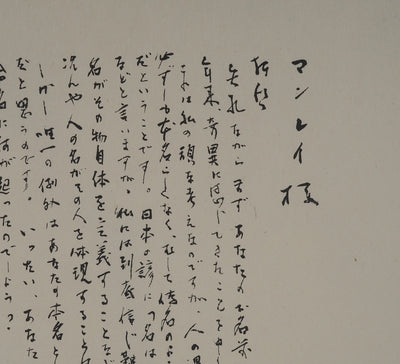 マン・レイ様
拝啓
失礼ながら まず あなたのお名前
年来、奇異に感じてきたことを申し
それは私の頑な考えなのですが、人の
必ずしも本名らしくなく、むしろ偽名の
だということです。日本の諺に「名は
などと言いますが、私には到底信じ難
名がその物自体を定義することなど
況んや人の名がその人を体現すること
しかし唯一の例外はあなたの本名と
だと思うのです。いったい、あなた
名に何が起ったのでしょう?